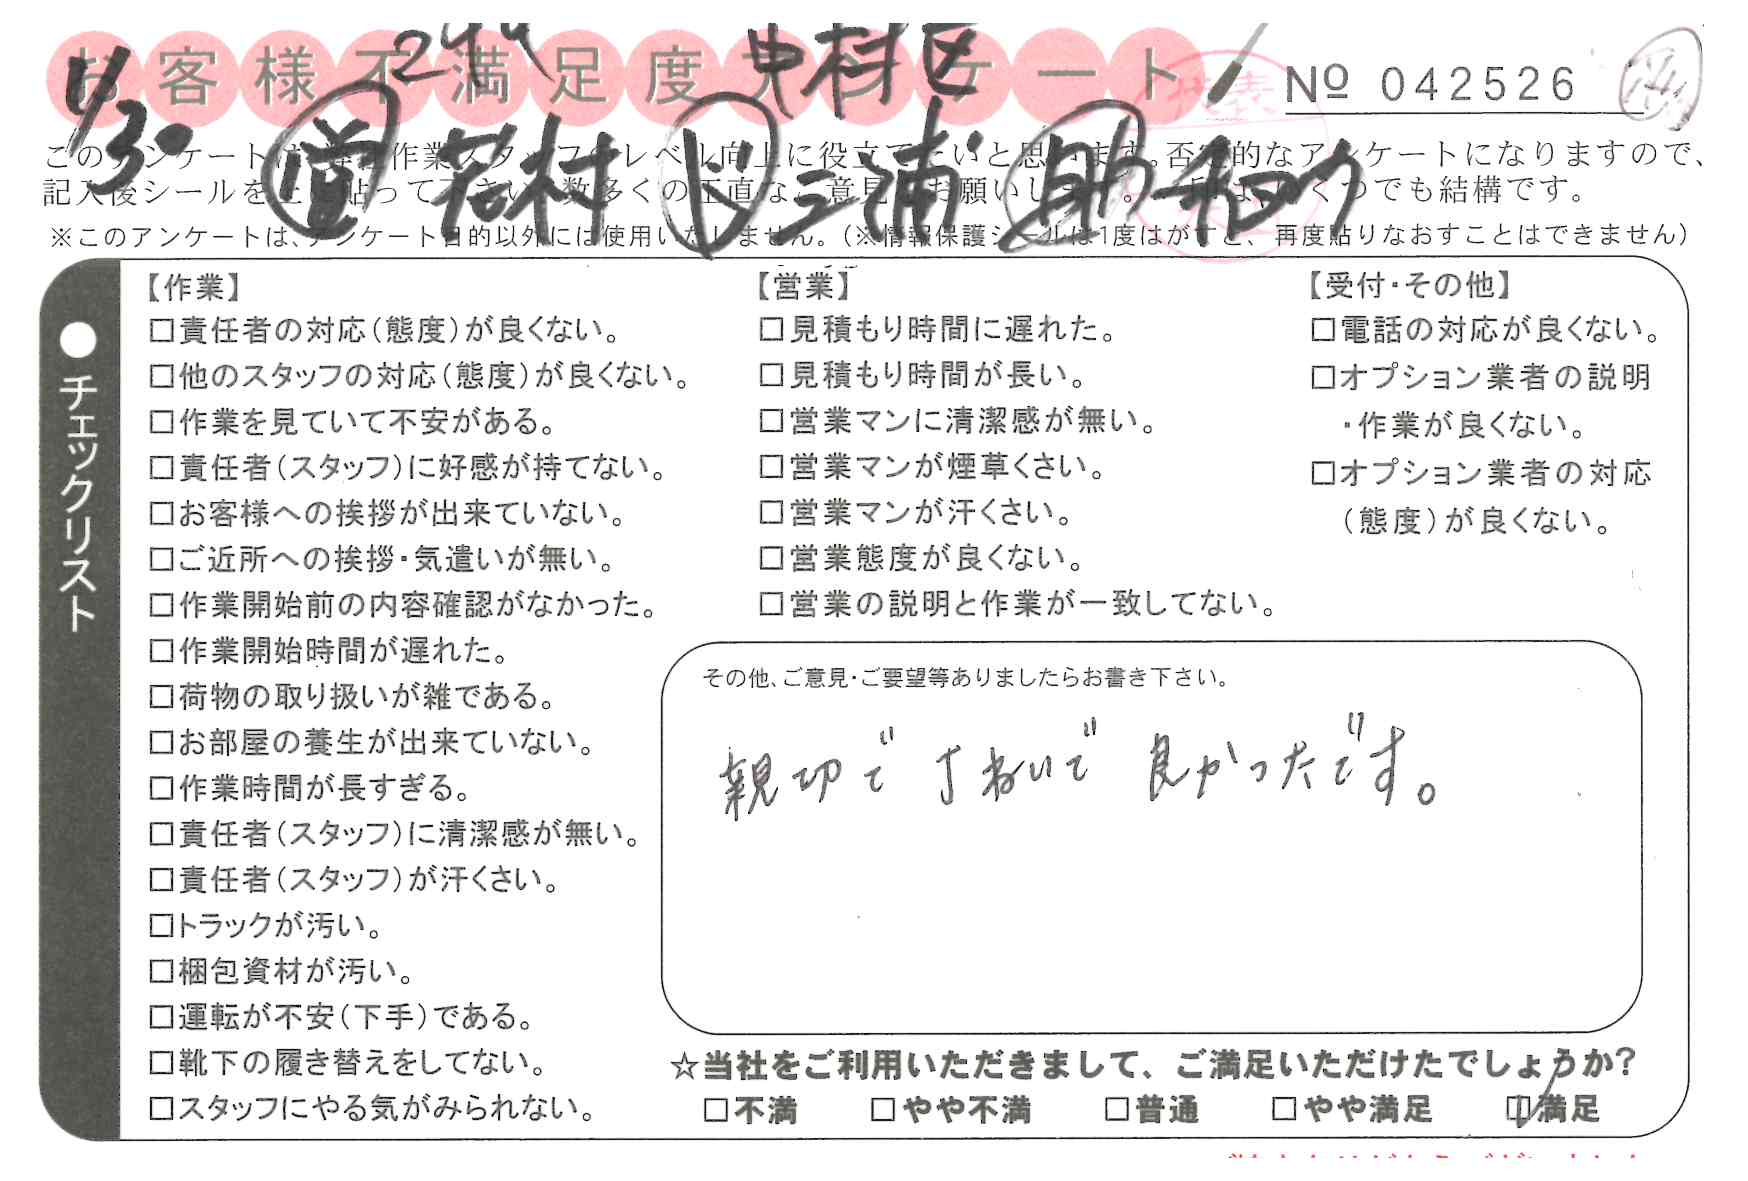 お客様不満足度アンケート
№ 042526
1/30
244
中村区
営 花村 ド 三浦 助
このアンケートは、弊社作業スタッフのレベル向上に役立てたいと思います。否定的なアンケートになりますので、
記入後シールを上に貼って下さい。数多くの正直なご意見をお願いします。✓印は、いくつでも結構です。
※このアンケートは、アンケート目的以外には使用いたしません。(※情報保護シールは1度はがすと、再度貼りなおすことはできません)
●チェックリスト
【作業】
□責任者の対応(態度)が良くない。
□他のスタッフの対応(態度)が良くない。
□作業を見ていて不安がある。
□責任者(スタッフ)に好感が持てない。
□お客様への挨拶が出来ていない。
□ご近所への挨拶・気遣いが無い。
□作業開始前の内容確認がなかった。
□作業開始時間が遅れた。
□荷物の取り扱いが雑である。
□お部屋の養生が出来ていない。
□作業時間が長すぎる。
□責任者(スタッフ)に清潔感が無い。
□責任者(スタッフ)が汗くさい。
□トラックが汚い。
□梱包資材が汚い。
□運転が不安(下手)である。
□靴下の履き替えをしてない。
□スタッフにやる気がみられない。
【営業】
□見積もり時間に遅れた。
□見積もり時間が長い。
□営業マンに清潔感が無い。
□営業マンが煙草くさい。
□営業マンが汗くさい。
□営業態度が良くない。
□営業の説明と作業が一致してない。
【受付・その他】
□電話の対応が良くない。
□オプション業者の説明
・作業が良くない。
□オプション業者の対応
(態度)が良くない。
その他、ご意見・ご要望等ありましたらお書き下さい。
親切で丁ねいで良かったです。
☆当社をご利用いただきまして、ご満足いただけたでしょうか?
□不満 □やや不満 □普通 □やや満足 ☑満足